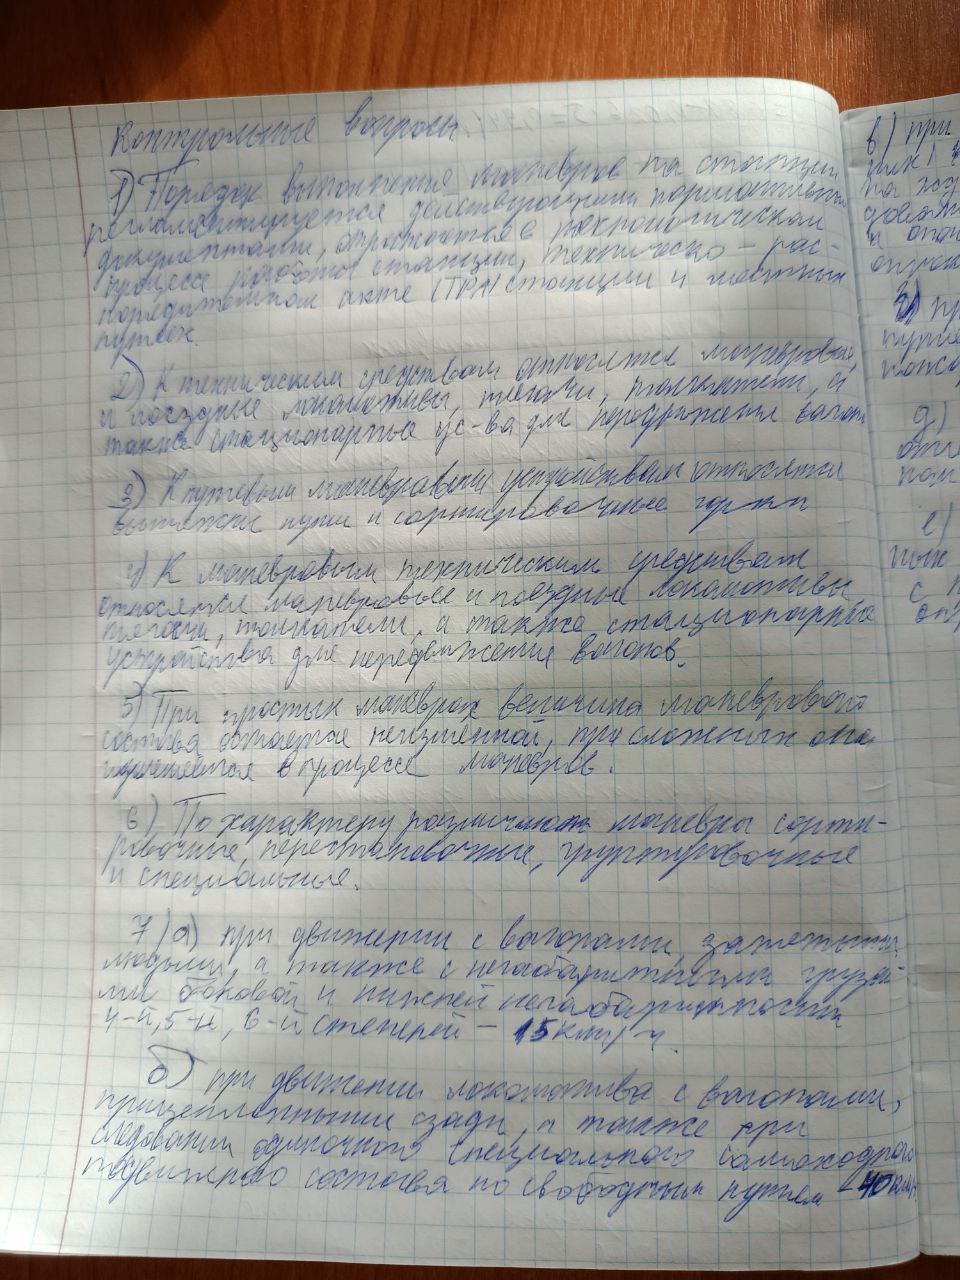 Контрольные вопросы
1) Порядок выполнения маневров на станции
регламентируется действующими нормативными
документами, отражается в технологическом
процессе работы станции, техническо - рас-
порядительном акте (ТРА) станции и местных
2) К техническим средствам относятся маневровые,
и поездные локомотивы, тягачи, толкатели, а
также стационарные ус-ва для передвижения вагонов
3) К путевым маневровым устройствам относятся
вытяжные пути и сортировочные горки
4) К маневровым техническим средствам
относятся маневровые и поездные локомотивы
тягачи, толкатели, а также стационарные
устройства для передвижения вагонов.
5) При простых маневрах величина маневрового
состава остается неизменной, при сложных она
изменяется в процессе маневров.
6) По характеру различают маневры сорти-
ровочные, перестановочные, группировочные
и специальные.
7) а) при движении с вагонами, занятыми
людьми, а также с негабаритными груза-
ми боковой и нижней негабаритности
4-й, 5-й, 6-й степеней - 15 км/ч.
б) при движении локомотива с вагонами,
прицепленными сзади, а также при
следовании одиночного специального самоходного
подвижного состава по свободным путям - 40 км/ч
в) при
на
д)
е)
с